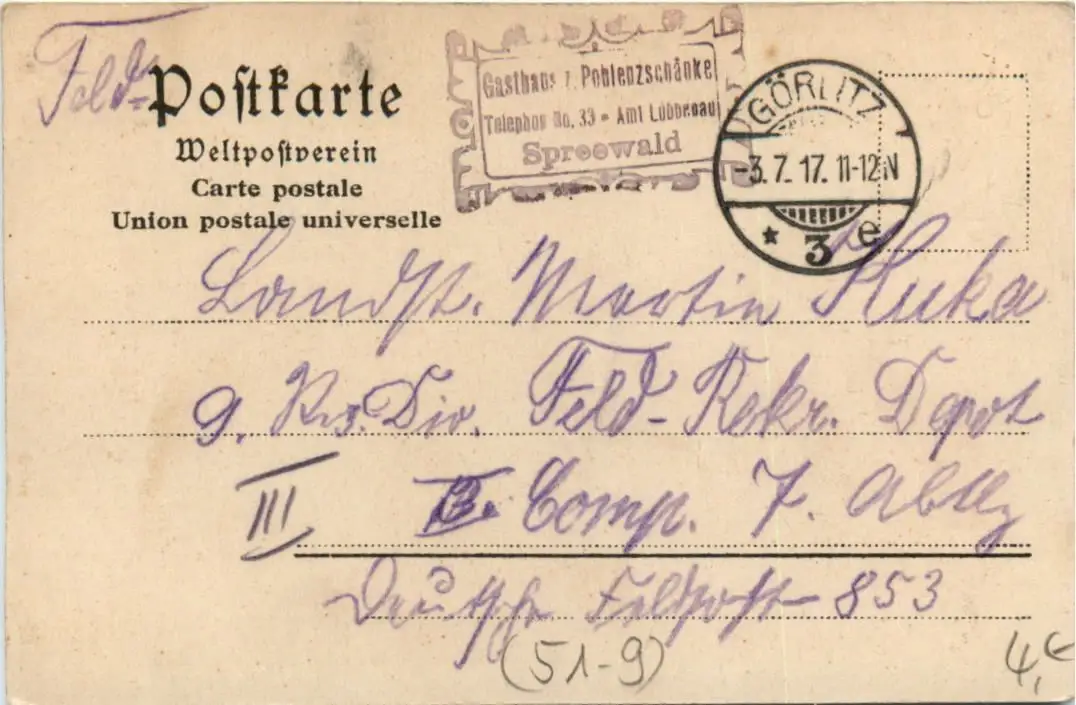 Feld-
Poſtkarte
Weltpoſtverein
Carte postale
Union postale universelle
Gasthaus z. Pohlenzschänke
Telephon No. 33 - Amt Lübbenau
Spreewald
GÖRLITZ
-3. 7. 17. 11-12 N
* 3 e
Landst. Martin Kluka
9. Res. Div. Feld-Rekr. Depot
III Comp. 7. Abtlg
Deutsche Feldpost 853
(51-9)
4,€